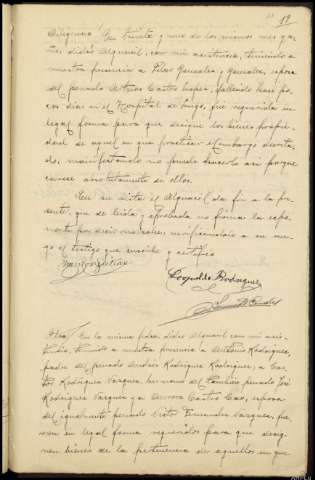 19
Diligencia. En treinta y uno de los mismos mes y
año, dicho Alguacil, con mi asistencia, teniendo a
nuestra presencia a Pilar Gonzalez y Gonzalez, esposa
del penado Arturo Castro Lopez, fallecido hace po-
cos días en el Hospital de Lugo, fué requerida en
legal forma para que designe los bienes propie-
dad de aquel en que practicar el embargo decreta-
do, manifestando no puede hacerlo así porque
carece absolutamente de ellos.
En su vista el Alguacil da fin a la pre-
sente, que de leída y aprobada no firma la espo-
nente por decir no saber, verificándolo a su rue-
go el testigo que suscribe y certifico
Leopoldo Rodriguez
Otra/ En la misma fecha, dicho Alguacil con mi asis-
tencia, teniendo a nuestra presencia a Antonio Rodriguez,
padre del penado Andrés Rodriguez Rodriguez, a Cas-
tor Rodriguez Vazquez, hermano del también penado José
Rodriguez Vazquez y a Aurora Castro Cao, esposa
del igualmente penado Sixto Fernandez Vazquez, fue-
ron en legal forma requeridos para que desig-
nen bienes de la pertenencia de aquellos en que